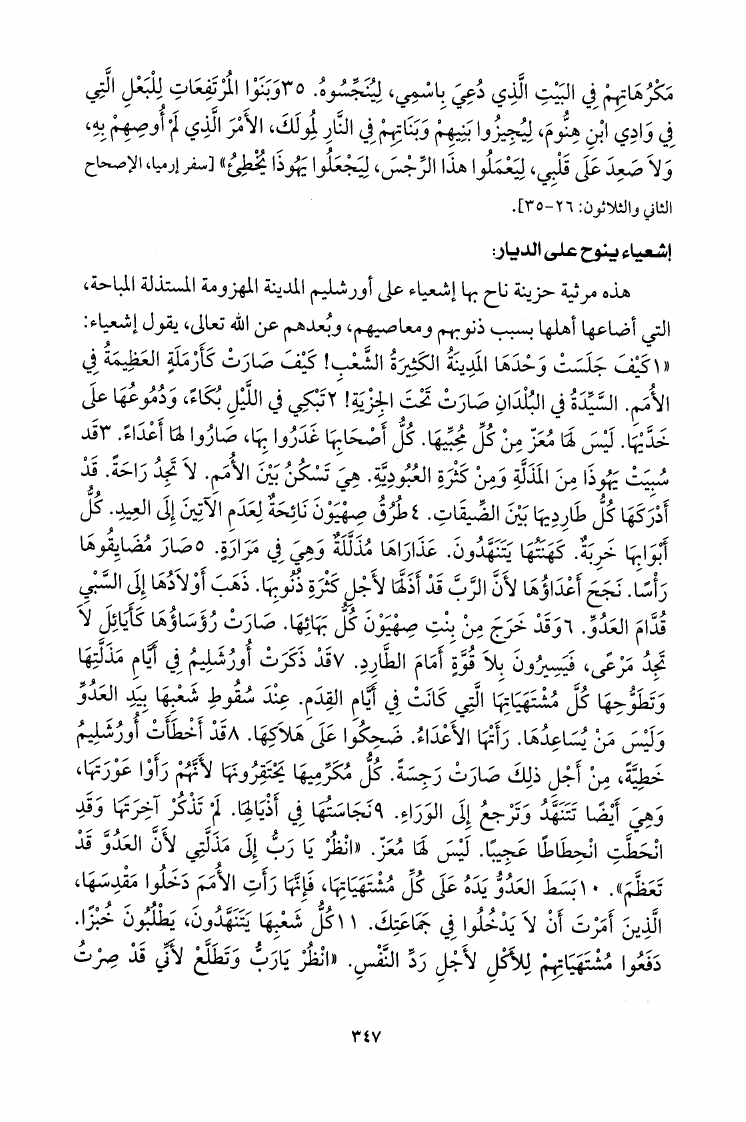 مَكْرُهَاتِهِمْ فِي البَيْتِ الَّذِي دُعِيَ بِاسْمِي، لِيُنَجِّسُوهُ. ٣٥وَبَنَوْا المُرْتَفِعَاتِ لِلْبَعْلِ الَّتِي
فِي وَادِي ابْنِ هِنُّومَ، لِيُجِيزُوا بَنِيهِمْ وَبَنَاتِهِمْ فِي النَّارِ لِمُولَكَ، الأَمْرَ الَّذِي لَمْ أُوصِهِمْ بِهِ،
وَلاَ صَعِدَ عَلَى قَلْبِي، لِيَعْمَلُوا هذَا الرِّجْسَ، لِيَجْعَلُوا يَهُوذَا يُخْطِئُ» [سفر إرميا، الإصحاح
الثاني والثلاثون: ٢٦-٣٥].
إشعياء ينوح على الديار:
هذه مرثية حزينة ناح بها إشعياء على أورشليم المدينة المهزومة المستذلة المباحة،
التي أضاعها أهلها بسبب ذنوبهم ومعاصيهم، وبُعدهم عن الله تعالى، يقول إشعياء:
«١كَيْفَ جَلَسَتْ وَحْدَهَا المَدِينَةُ الكَثِيرَةُ الشَّعْبِ! كَيْفَ صَارَتْ كَأَرْمَلَةٍ العَظِيمَةُ فِي
الأُمَمِ. السَّيِّدَةُ فِي البُلْدَانِ صَارَتْ تَحْتَ الجِزْيَةِ! ٢تَبْكِي فِي اللَّيْلِ بُكَاءً، وَدُمُوعُهَا عَلَى
خَدَّيْهَا. لَيْسَ لَهَا مُعَزٍّ مِنْ كُلِّ مُحِبِّيهَا. كُلُّ أَصْحَابِهَا غَدَرُوا بِهَا، صَارُوا لَهَا أَعْدَاءً. ٣قَدْ
سُبِيَتْ يَهُوذَا مِنَ المَذَلَّةِ وَمِنْ كَثْرَةِ العُبُودِيَّةِ. هِيَ تَسْكُنُ بَيْنَ الأُمَمِ. لاَ تَجِدُ رَاحَةً. قَدْ
أَدْرَكَهَا كُلُّ طَارِدِيهَا بَيْنَ الضِّيقَاتِ. ٤طُرُقُ صِهْيَوْنَ نَائِحَةٌ لِعَدَمِ الآتِينَ إِلَى العِيدِ. كُلُّ
أَبْوَابِهَا خَرِبَةٌ. كَهَنَتُهَا يَتَنَهَّدُونَ. عَذَارَاهَا مُذَلَّلَةٌ وَهِيَ فِي مَرَارَةٍ. ٥صَارَ مُضَايِقُوهَا
رَأْسًا. نَجَحَ أَعْدَاؤُهَا لأَنَّ الرَّبَّ قَدْ أَذَلَّهَا لأَجْلِ كَثْرَةِ ذُنُوبِهَا. ذَهَبَ أَوْلاَدُهَا إِلَى السَّبْيِ
قُدَّامَ العَدُوِّ. ٦وَقَدْ خَرَجَ مِنْ بِنْتِ صِهْيَوْنَ كُلُّ بَهَائِهَا. صَارَتْ رُؤَسَاؤُهَا كَأَيَائِلَ لاَ
تَجِدُ مَرْعًى، فَيَسِيرُونَ بِلاَ قُوَّةٍ أَمَامَ الطَّارِدِ. ٧قَدْ ذَكَرَتْ أُورُشَلِيمُ فِي أَيَّامِ مَذَلَّتِهَا
وَتَطَوُّحِهَا كُلَّ مُشْتَهَيَاتِهَا الَّتِي كَانَتْ فِي أَيَّامِ القِدَمِ. عِنْدَ سُقُوطِ شَعْبِهَا بِيَدِ العَدُوِّ
وَلَيْسَ مَنْ يُسَاعِدُهَا. رَأَتْهَا الأَعْدَاءُ. ضَحِكُوا عَلَى هَلاَكِهَا. ٨قَدْ أَخْطَأَتْ أُورُشَلِيمُ
خَطِيَّةً، مِنْ أَجْلِ ذلِكَ صَارَتْ رَجِسَةً. كُلُّ مُكَرِّمِيهَا يَحْتَقِرُونَهَا لأَنَّهُمْ رَأَوْا عَوْرَتَهَا،
وَهِيَ أَيْضًا تَتَنَهَّدُ وَتَرْجِعُ إِلَى الوَرَاءِ. ٩نَجَاسَتُهَا فِي أَذْيَالِهَا. لَمْ تَذْكُرْ آخِرَتَهَا وَقَدِ
انْحَطَّتِ انْحِطَاطًا عَجِيبًا. لَيْسَ لَهَا مُعَزٍّ. «انْظُرْ يَا رَبُّ إِلَى مَذَلَّتِي لأَنَّ العَدُوَّ قَدْ
تَعَظَّمَ». ١٠بَسَطَ العَدُوُّ يَدَهُ عَلَى كُلِّ مُشْتَهَيَاتِهَا، فَإِنَّهَا رَأَتِ الأُمَمَ دَخَلُوا مَقْدِسَهَا،
الَّذِينَ أَمَرْتَ أَنْ لاَ يَدْخُلُوا فِي جَمَاعَتِكَ. ١١كُلُّ شَعْبِهَا يَتَنَهَّدُونَ، يَطْلُبُونَ خُبْزًا.
دَفَعُوا مُشْتَهَيَاتِهِمْ لِلأَكْلِ لأَجْلِ رَدِّ النَّفْسِ. «انْظُرْ يَارَبُّ وَتَطَلَّعْ لأَنِّي قَدْ صِرْتُ
٣٤٧